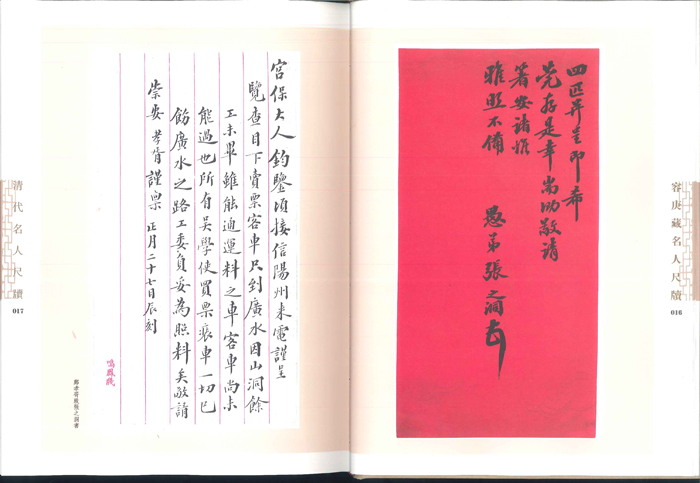 四匹并呈即希
莞存是幸尚此敬請
著安諸惟
雅照不備
愚弟張之洞
容庚藏名人尺牘
016
宮保大人鈞鑒頃接信陽州來電謹呈
覽查目下賣票客車只到廣水因山洞餘
工未畢雖能通運料之車客車尚未
能過也所有吳學使買票裝車一切已
飭廣水之路工委員妥為照料矣敬請
崇安 孝胥謹稟 正月二十七日辰刻
鳴鳳牋
鄭孝胥致張之洞書
清代名人尺牘
017